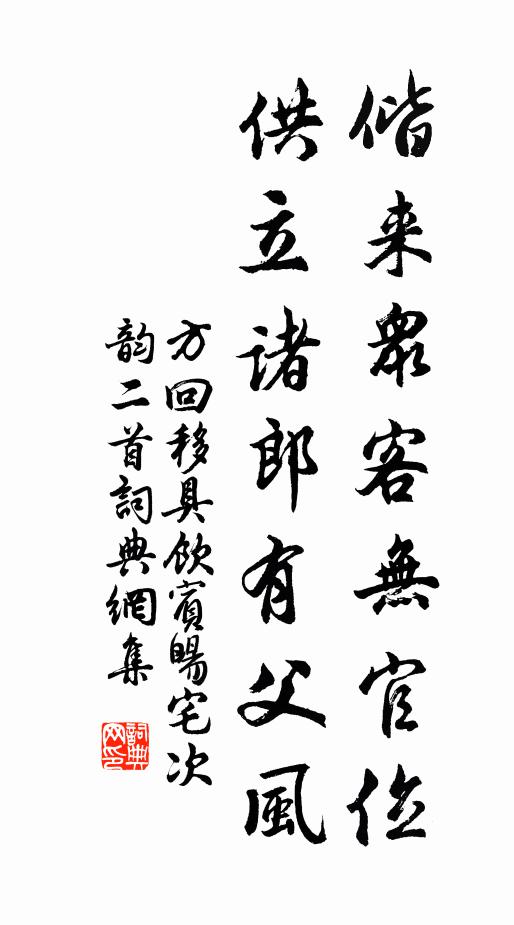 偕来衆客無官俭
供立诸郎有父風
方回移具飲賓暘宅次
韵二首詞典網集
詞典
网印